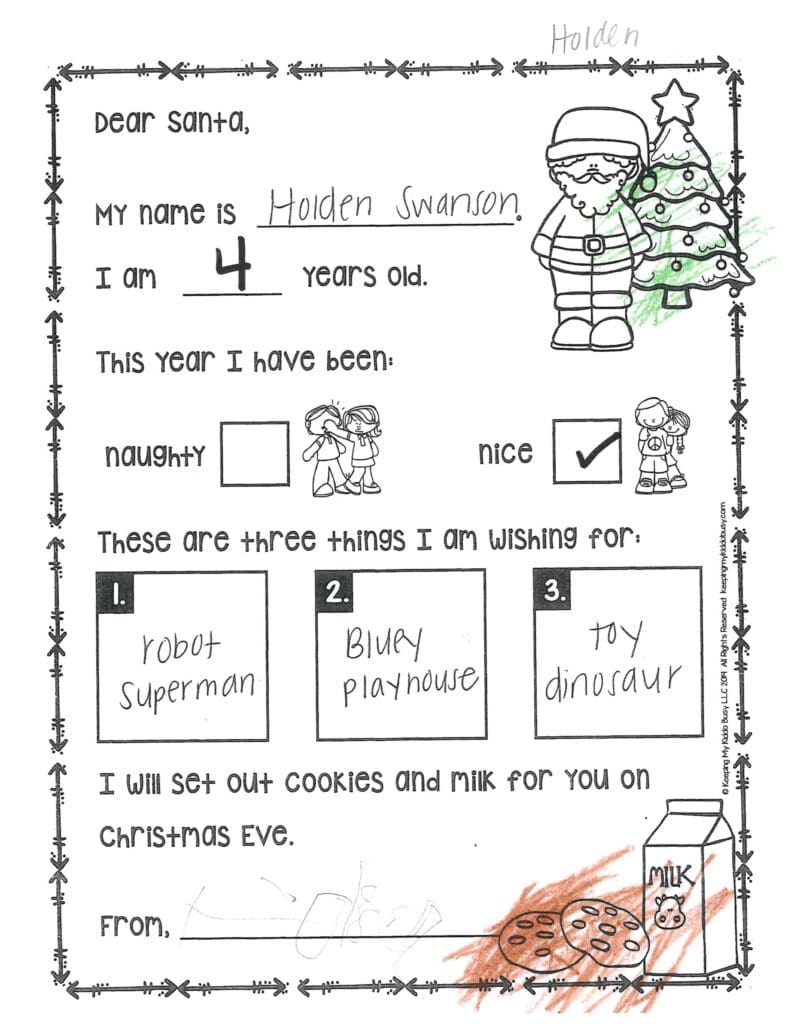 Holden
Dear Santa,
My name is Holden Swanson.
I am 4 years old.
This year I have been:
naughty nice
These are three things I am wishing for:
1. 2. 3.
robot Bluey toy
superman playhouse dinosaur
I will set out cookies and milk for you on
Christmas Eve.
From,
MILK
© Keeping My Kiddo Busy LLC 2019 All Rights Reserved keepingmykiddobusy.com